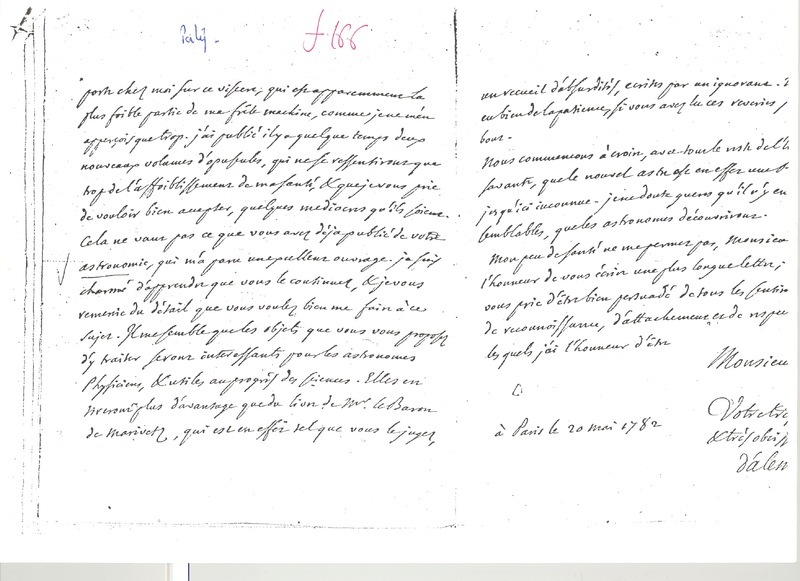 f. 166
porte chez moi sur ce viscere, qui est apparemment la
plus foible partie de ma frêle machine, comme je ne m'en
apperçois que trop. j'ai publié il y a quelque temps deux
nouveaux volumes d'opuscules, qui ne se ressentiront que
trop de l'affoiblissement de ma santé, & que je vous prie
de vouloir bien accepter, quelques mediocres qu'ils soient.
Cela ne vaut pas ce que vous avez déja publié de votre
astronomie, qui m'a paru un excellent ouvrage. je suis
charmé d'apprendre que vous le continuez, & je vous
remercie du détail que vous voulez bien me faire à ce
sujet. Il me semble que les objets que vous vous proposez
d'y traiter seront interessants pour les astronomes
Physiciens, & utiles au progrès des sciences. Elles en
tireront plus d'avantage que du livre de Mr. le Baron
de Marivetz, qui est en effet tel que vous le jugez,
un recueil d'absurdités, ecrites par un ignorant.
eu bien de la patience, si vous avez lu ces reveries
bout.
Nous commencons à croire, avec tout le reste de l'
savante, que le nouvel astre est en effet une
jusqu'ici inconnue. je ne doute guere qu'il n'y en
semblables, que les astronomes découvriront.
Mon peu de santé ne me permet pas, Monsieur
l'honneur de vous écrire une plus longue lettre;
vous prie d'être bien persuadé de tous les sentim
de reconnoissance, d'attachement et de respe
les quels j'ai l'honneur d'être
Monsieu
à Paris le 20 mai 1782
Votre trè
& très obéiss
D'alem